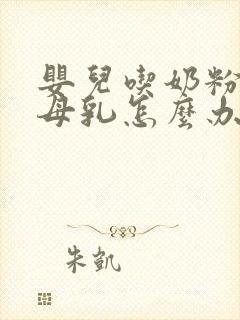 嬰兒喫奶粉
母乳怎麼办
朱凱